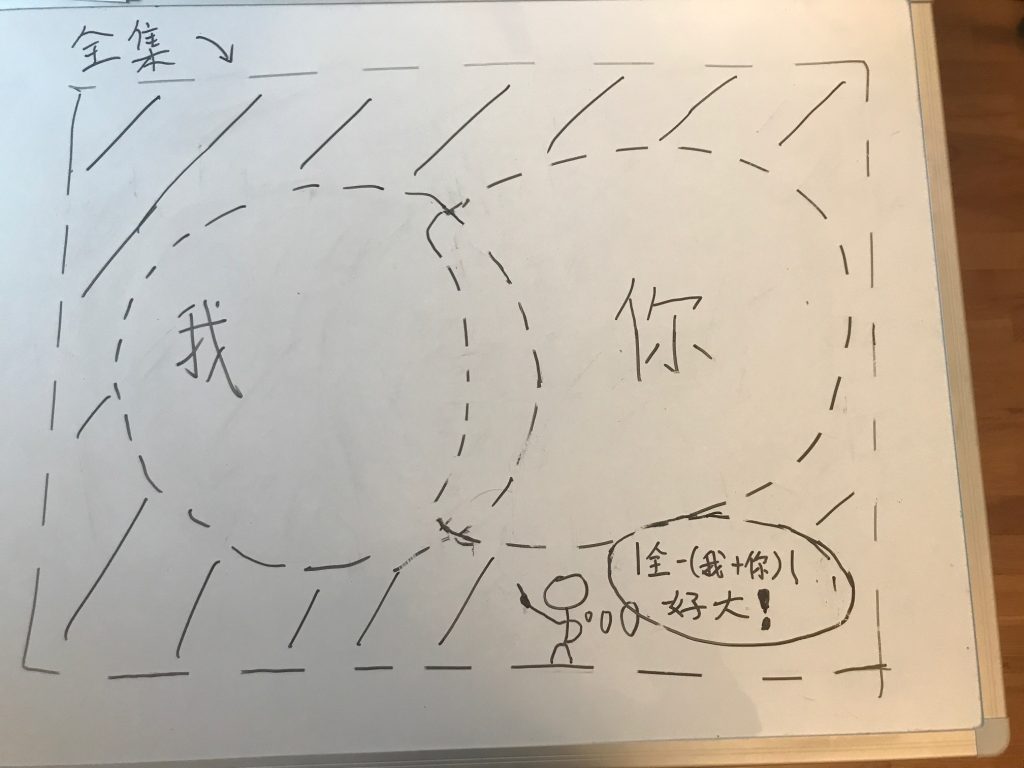 全集
我
你
|全-(我+你)|
好大!